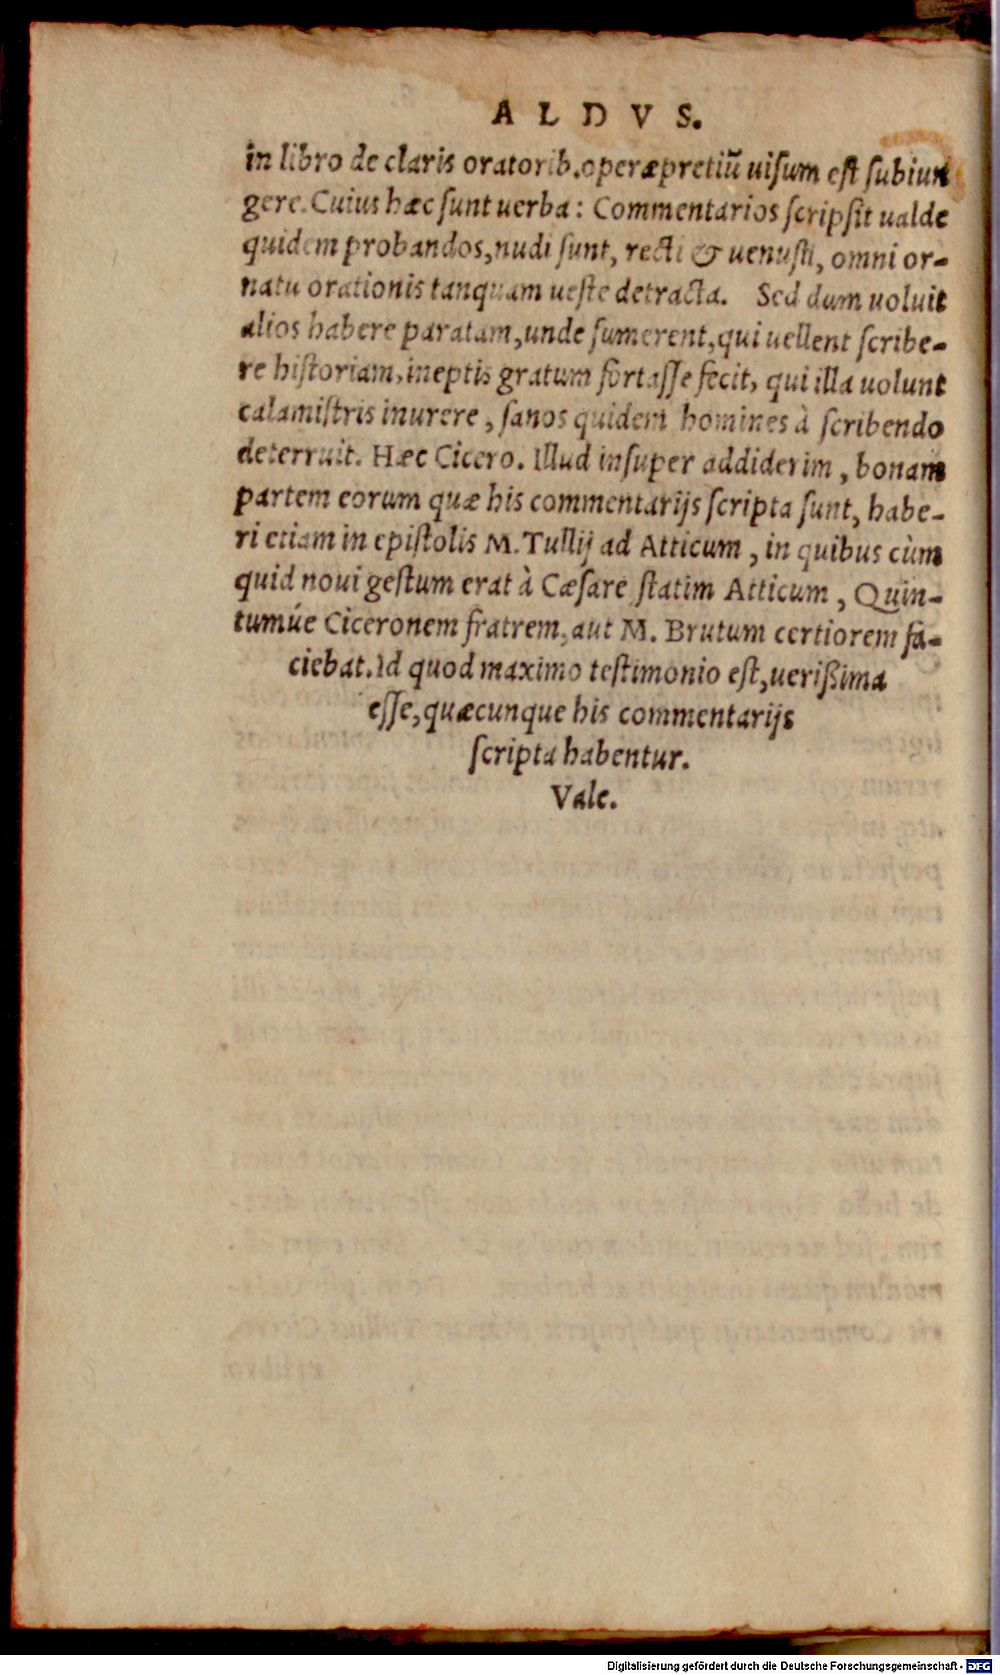 ALDVS.
in libro de claris oratorib. operæpretiũ uiſum eſt ſubiun
gere. Cuius hæc ſunt uerba: Commentarios ſcripſit ualde
quidem probandos, nudi ſunt, recti & uenuſti, omni or-
natu orationis tanquam ueſte detracta. Sed dum uoluit
alios habere paratam, unde ſumerent, qui uellent ſcribe-
re hiſtoriam, ineptis gratum fortaſſe fecit, qui illa uolunt
calamiſtris inurere, ſanos quidem homines à ſcribendo
deterruit. Hæc Cicero. Illud inſuper addiderim, bonam
partem eorum quæ his commentarijs ſcripta ſunt, habe-
ri etiam in epiſtolis M. Tullij ad Atticum, in quibus cùm
quid noui geſtum erat à Cæſare ſtatim Atticum, Quin-
tumúe Ciceronem fratrem, aut M. Brutum certiorem fa-
ciebat. Id quod maximo teſtimonio eſt, ueriſſima
eſſe, quæcunque his commentarijs
ſcripta habentur.
Vale.
Digitalisierung gefördert durch die Deutsche Forschungsgemeinschaft - DFG